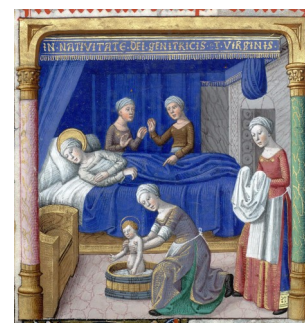 IN·NATIVITATE·DEI·GENITRICIS·
VIRGINIS·